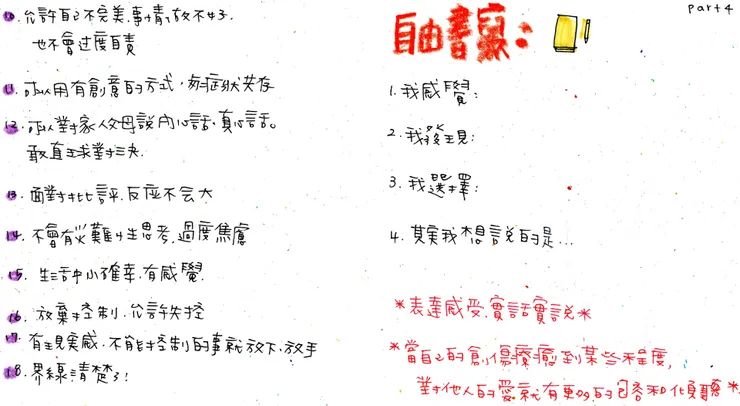 10. 允許自己不完美,事情放不好.
也不會过度自責
11. 可以用有創意的方式,与症狀共存
12. 可以對家人父母說內心話,真心話。
敢直球對決.
13. 面對批評.反应不会大
14. 不會有災難性思考,過度焦慮
15. 生活中小確幸.有感覺.
16. 放棄控制.允許失控
17. 有現实感.不能控制的事就放下.放手
18. 界線清楚了!
part4
自由書寫:
1. 我感覺:
2. 我發現:
3. 我選擇:
4. 其实我想說的是...
*表達感受.實話實說*
*當自己的創傷療癒到某些程度,
對他人的愛就有更多的包容和傾聽*